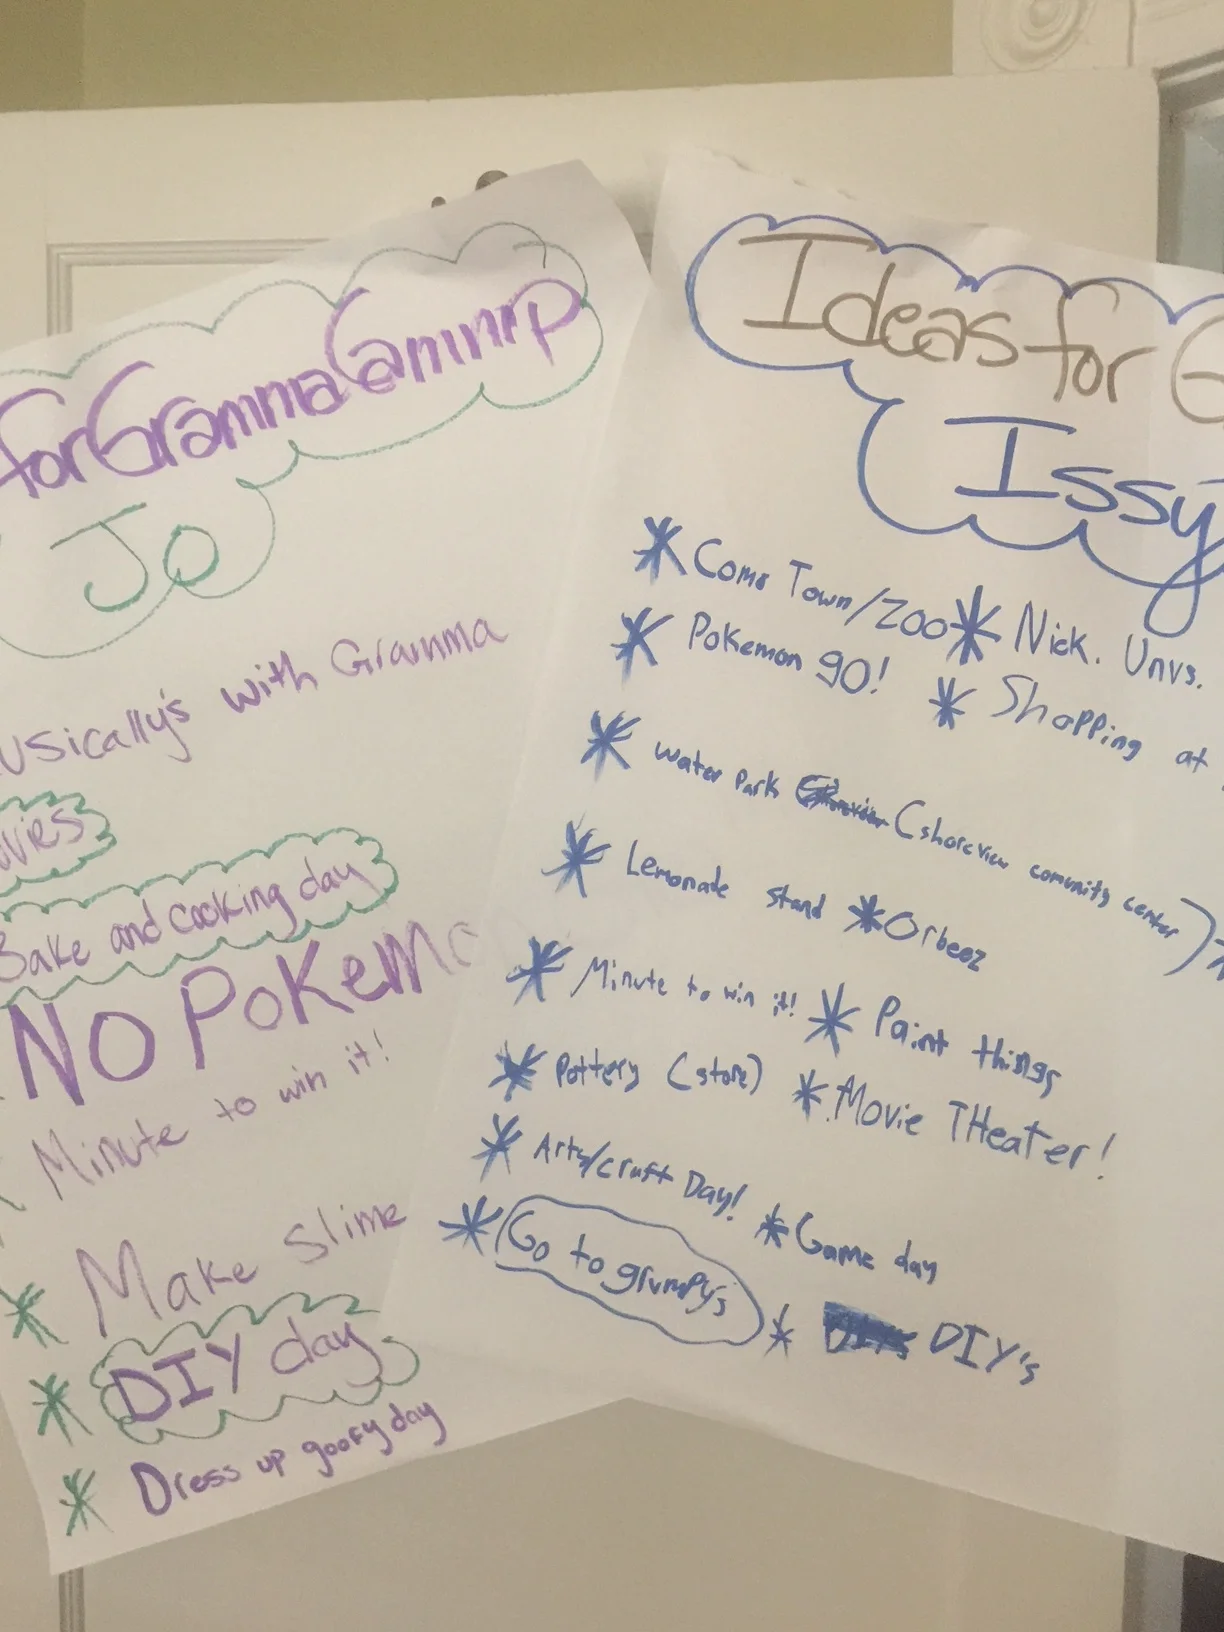 for Gramma Camnrp
Jo
usically's with Gramma
ovies
Bake and cooking day
NO POKemo
Minute to win it!
Make Slime
DIY day
Dress up goofy day
Ideas for G
Issy
Como Town/ZOO * Nick. Unvs.
Pokemon GO! * Shopping at
water park (shoreview comunity center)
Lemonade stand * Orbeez
Minute to win it! * Paint things
Pottery (store) * Movie THeater!
Arts/craft Day! * Game day
Go to grumpys * DIY's